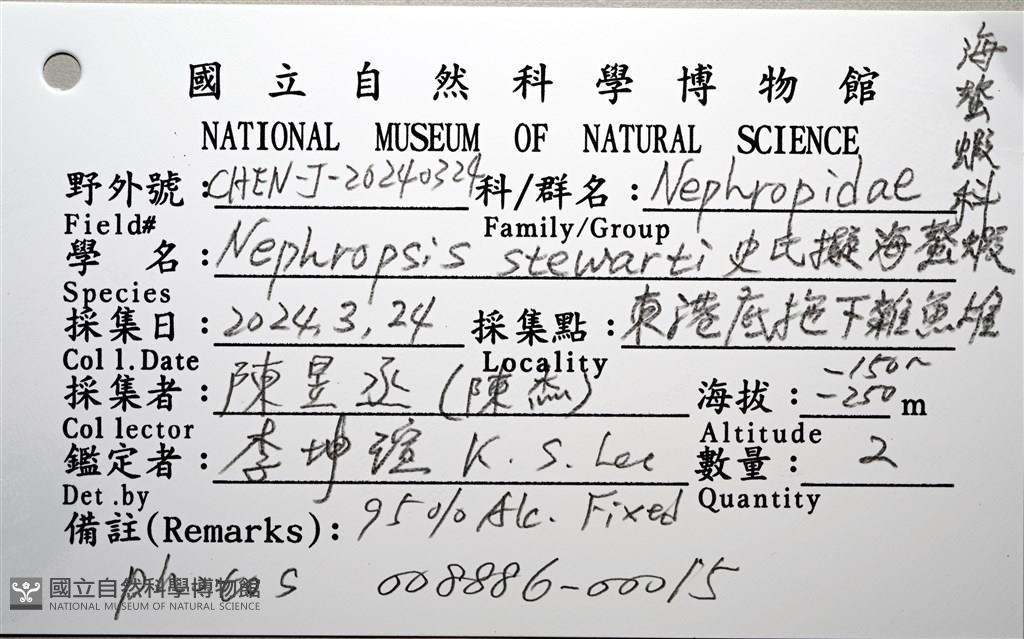 國立自然科學博物館
NATIONAL MUSEUM OF NATURAL SCIENCE
海螯蝦科
野外號：CHEN-J-20240324 科/群名：Nephropidae
Field# Family/Group
學 名：Nephropsis stewarti 史氏擬海螯蝦
Species
採集日：2024.3.24 採集點：東港底拖下雜魚堆
Coll.Date Locality
採集者：陳昱丞(陳杰) 海拔：-150~-250 m
Collector Altitude
鑑定者：李坤瑄 K. S. Lee 數量：2
Det.by Quantity
備註(Remarks)：95% Alc. Fixed
photos 008886-00015
國立自然科學博物館
NATIONAL MUSEUM OF NATURAL SCIENCE